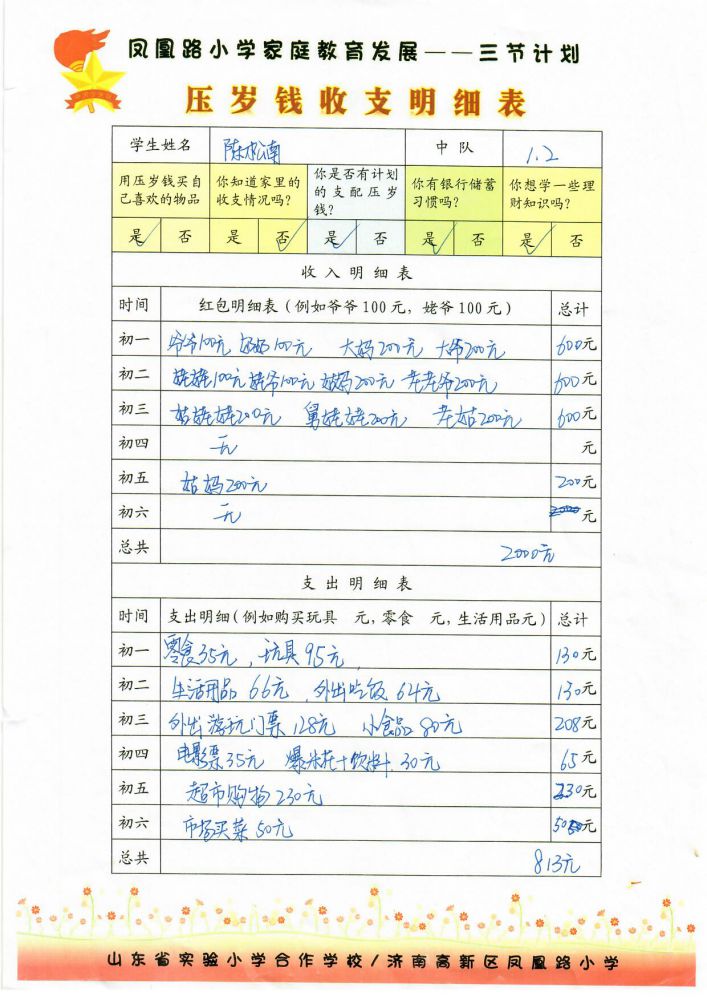 凤凰路小学家庭教育发展——三节计划
压岁钱收支明细表
学生姓名 陈水湳 中队 1.2
用压岁钱买自己喜欢的物品 你知道家里的收支情况吗? 你是否有计划的支配压岁钱? 你有银行储蓄习惯吗? 你想学一些理财知识吗?
是✓ 否 是 否✓ 是✓ 否 是✓ 否 是✓ 否
收入明细表
时间 红包明细表(例如爷爷100元,姥爷100元) 总计
初一 爷爷100元 奶奶100元 大妈200元 大爷200元 600元
初二 姥姥100元 姥爷100元 姑妈200元 老老爷200元 600元
初三 姑姥姥200元 舅姥姥200元 老姑200元 600元
初四 无 元
初五 姑妈200元 200元
初六 无 元
总共 2000元
支出明细表
时间 支出明细(例如购买玩具 元,零食 元,生活用品元) 总计
初一 零食35元,玩具95元 130元
初二 生活用品 66元,外出吃饭 64元 130元
初三 外出游玩门票128元 小食品80元 208元
初四 电影票35元 爆米花+饮料 30元 65元
初五 超市购物230元 230元
初六 市场买菜50元 50元
总共 813元
山东省实验小学合作学校/济南高新区凤凰路小学